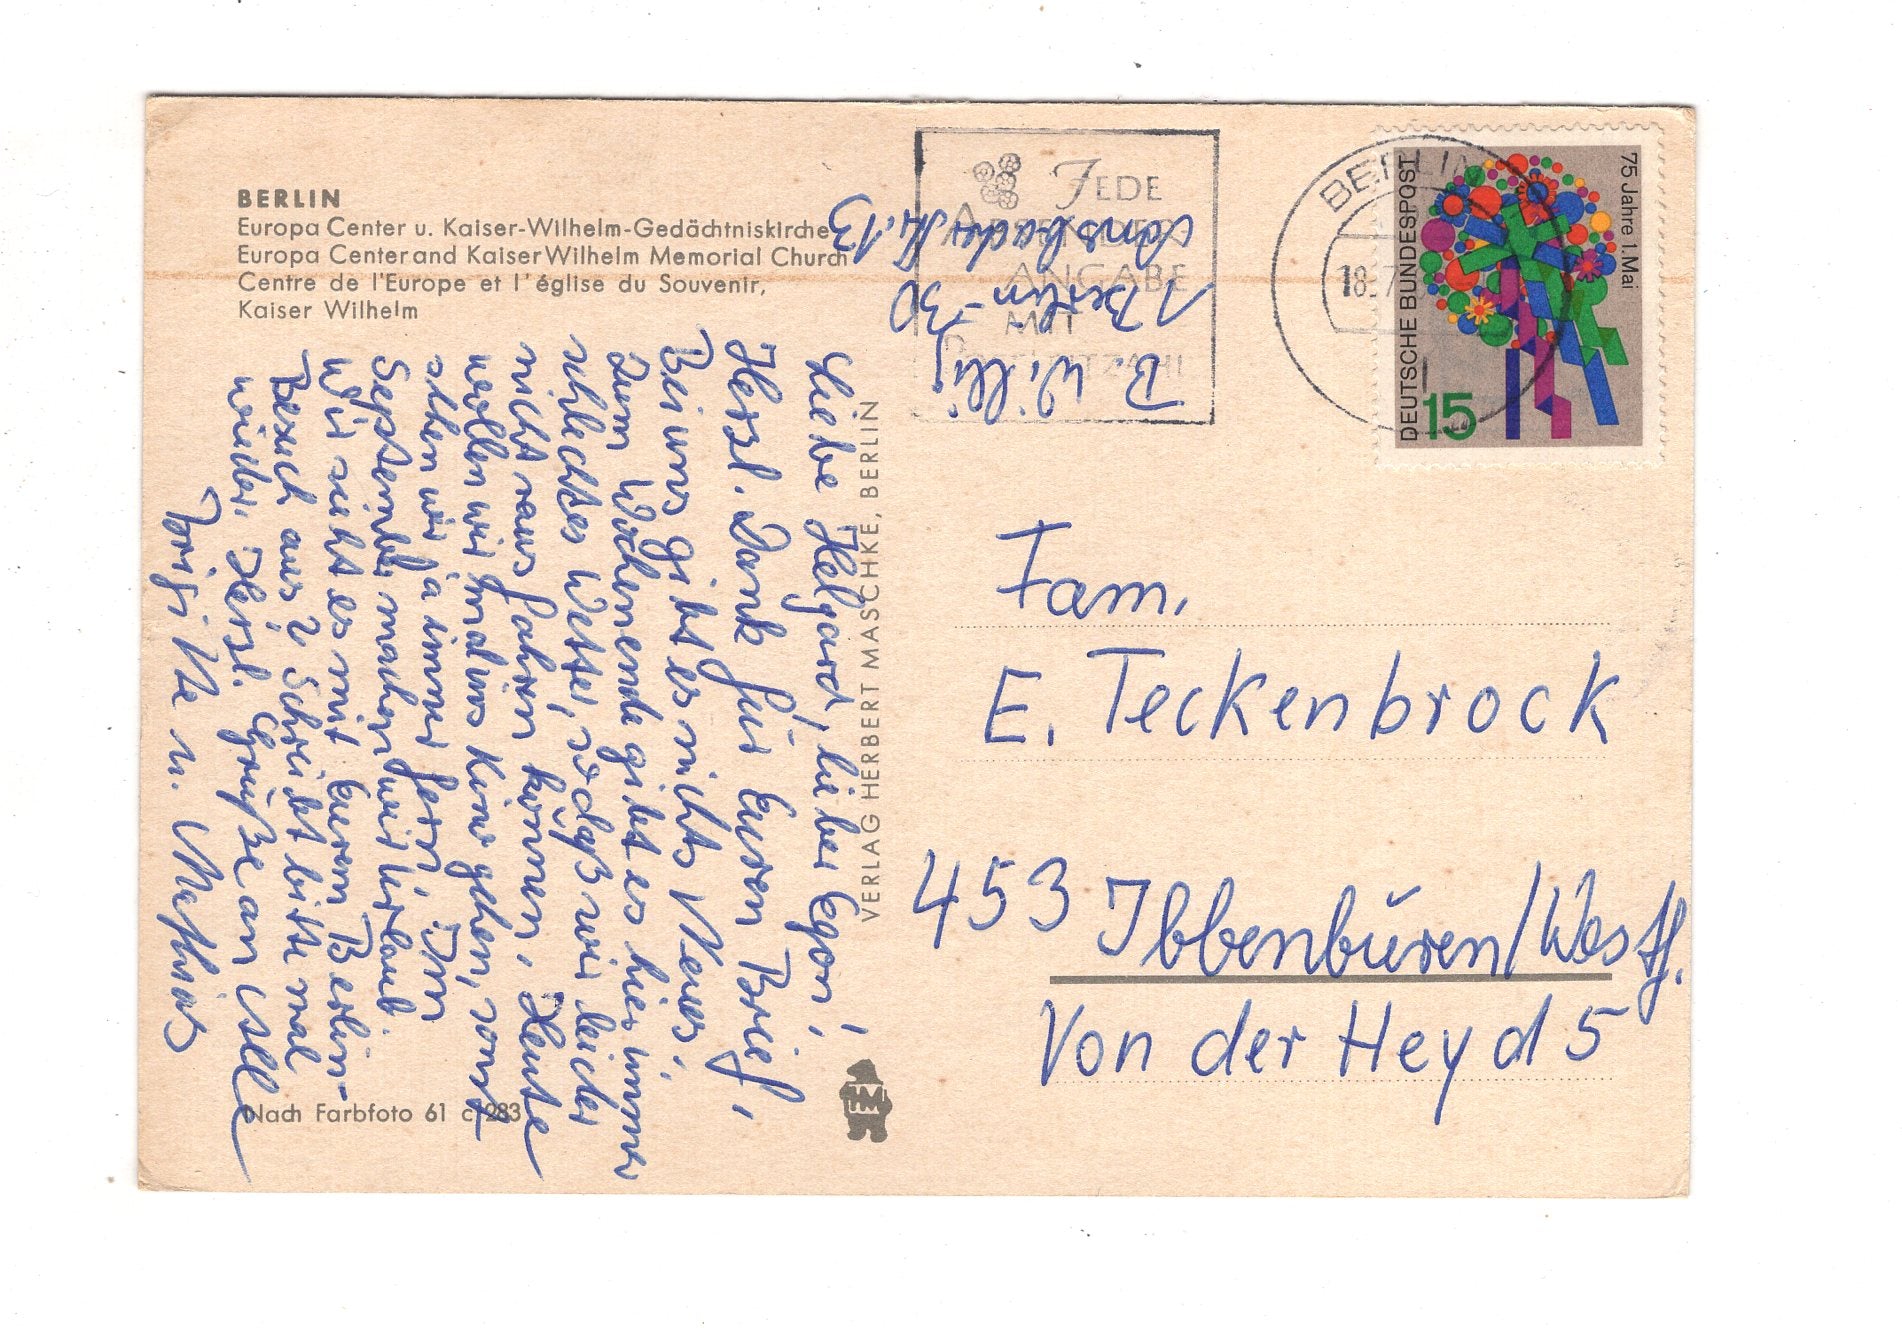 BERLIN
Europa Center u. Kaiser-Wilhelm-Gedächtniskirche
Europa Center and Kaiser Wilhelm Memorial Church
Centre de l'Europe et l'église du Souvenir,
Kaiser Wilhelm
Liebe Helgard, lieber Egon!
Herzl. Dank für Euren Brief,
Bei uns gibt es nichts Neues,
Zum Wochenende gibt es hier immer
schlechtes Wetter, sodaß wir leider
nicht raus fahren können, Heute
wollen wir mal ins Kino gehen, sonst
sehen wir ja immer fern, Im
September machen wir Urlaub.
Wie sieht es mit Eurem Berlin-
Besuch aus? Schreibt bitte mal
wieder, Herzl. Grüße an Alle
u.
Nach Farbfoto 61 c 283
VERLAG HERBERT MASCHKE, BERLIN
HM
B. Willig
1 Berlin-30
Ansbacher Str. 13
JEDE
ABSENDER
ANGABE
MIT
POSTLEITZAHL
BERLIN
18.7.
DEUTSCHE BUNDESPOST
75 Jahre 1. Mai
15
Fam.
E. Teckenbrock
453 Ibbenbüren/Westf.
Von der Heyd 5